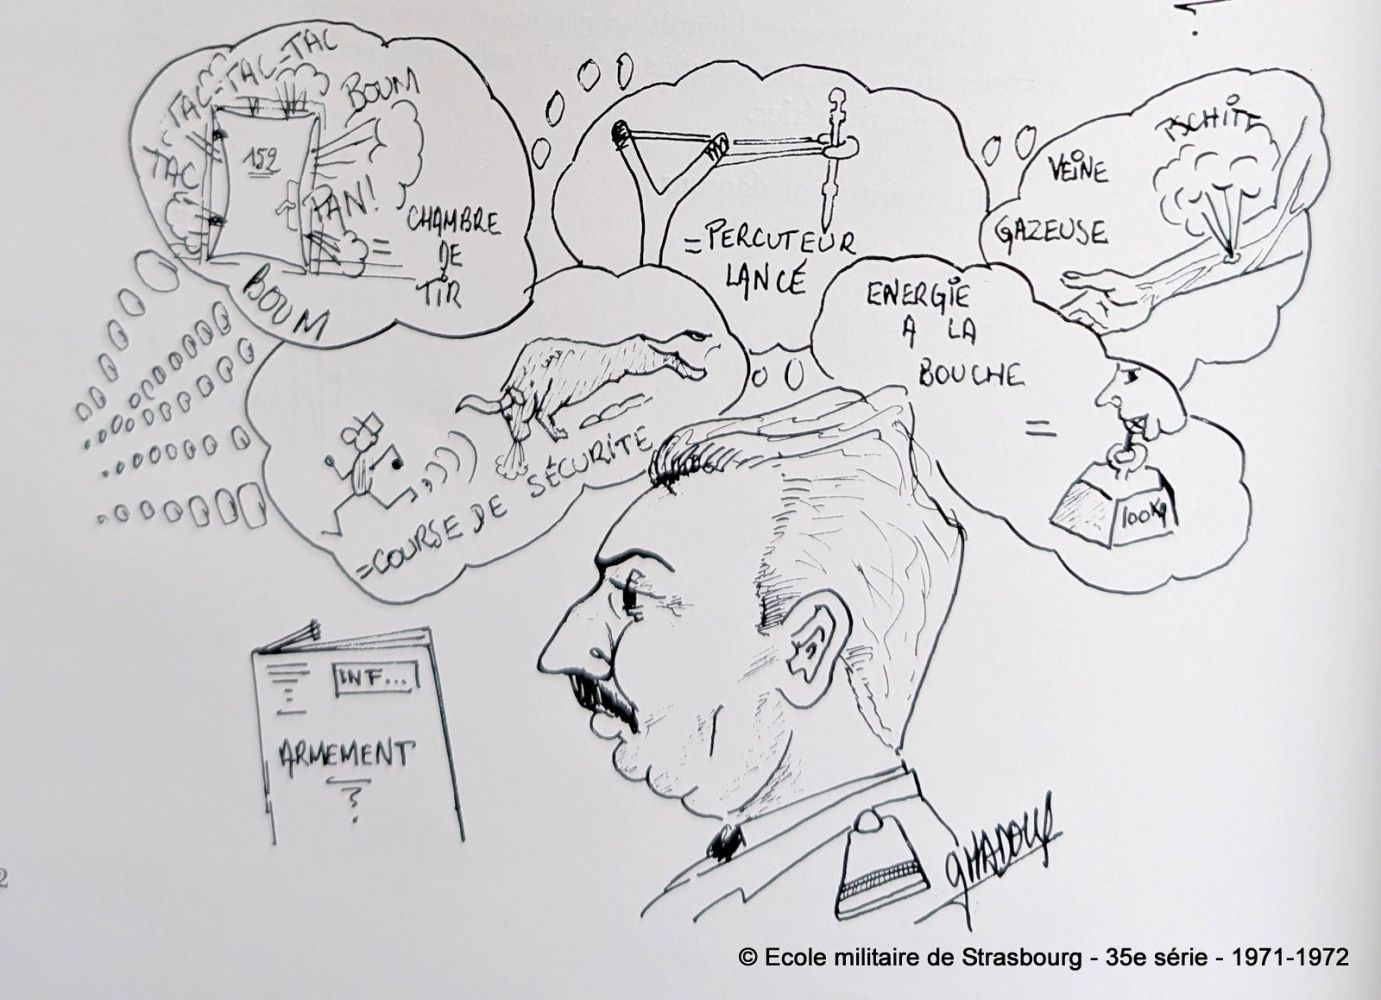 TAC-TAC-TAC-TAC
BOUM
152
PAN!
BOUM
= CHAMBRE
DE
TIR
= PERCUTEUR
LANCÉ
PSCHITT
VEINE
GAZEUSE
= COURSE DE SÉCURITÉ
ENERGIE
A LA
BOUCHE
=
100Kg
INF...
ARMEMENT
?
GHADOUR
2
© Ecole militaire de Strasbourg - 35e série - 1971-1972